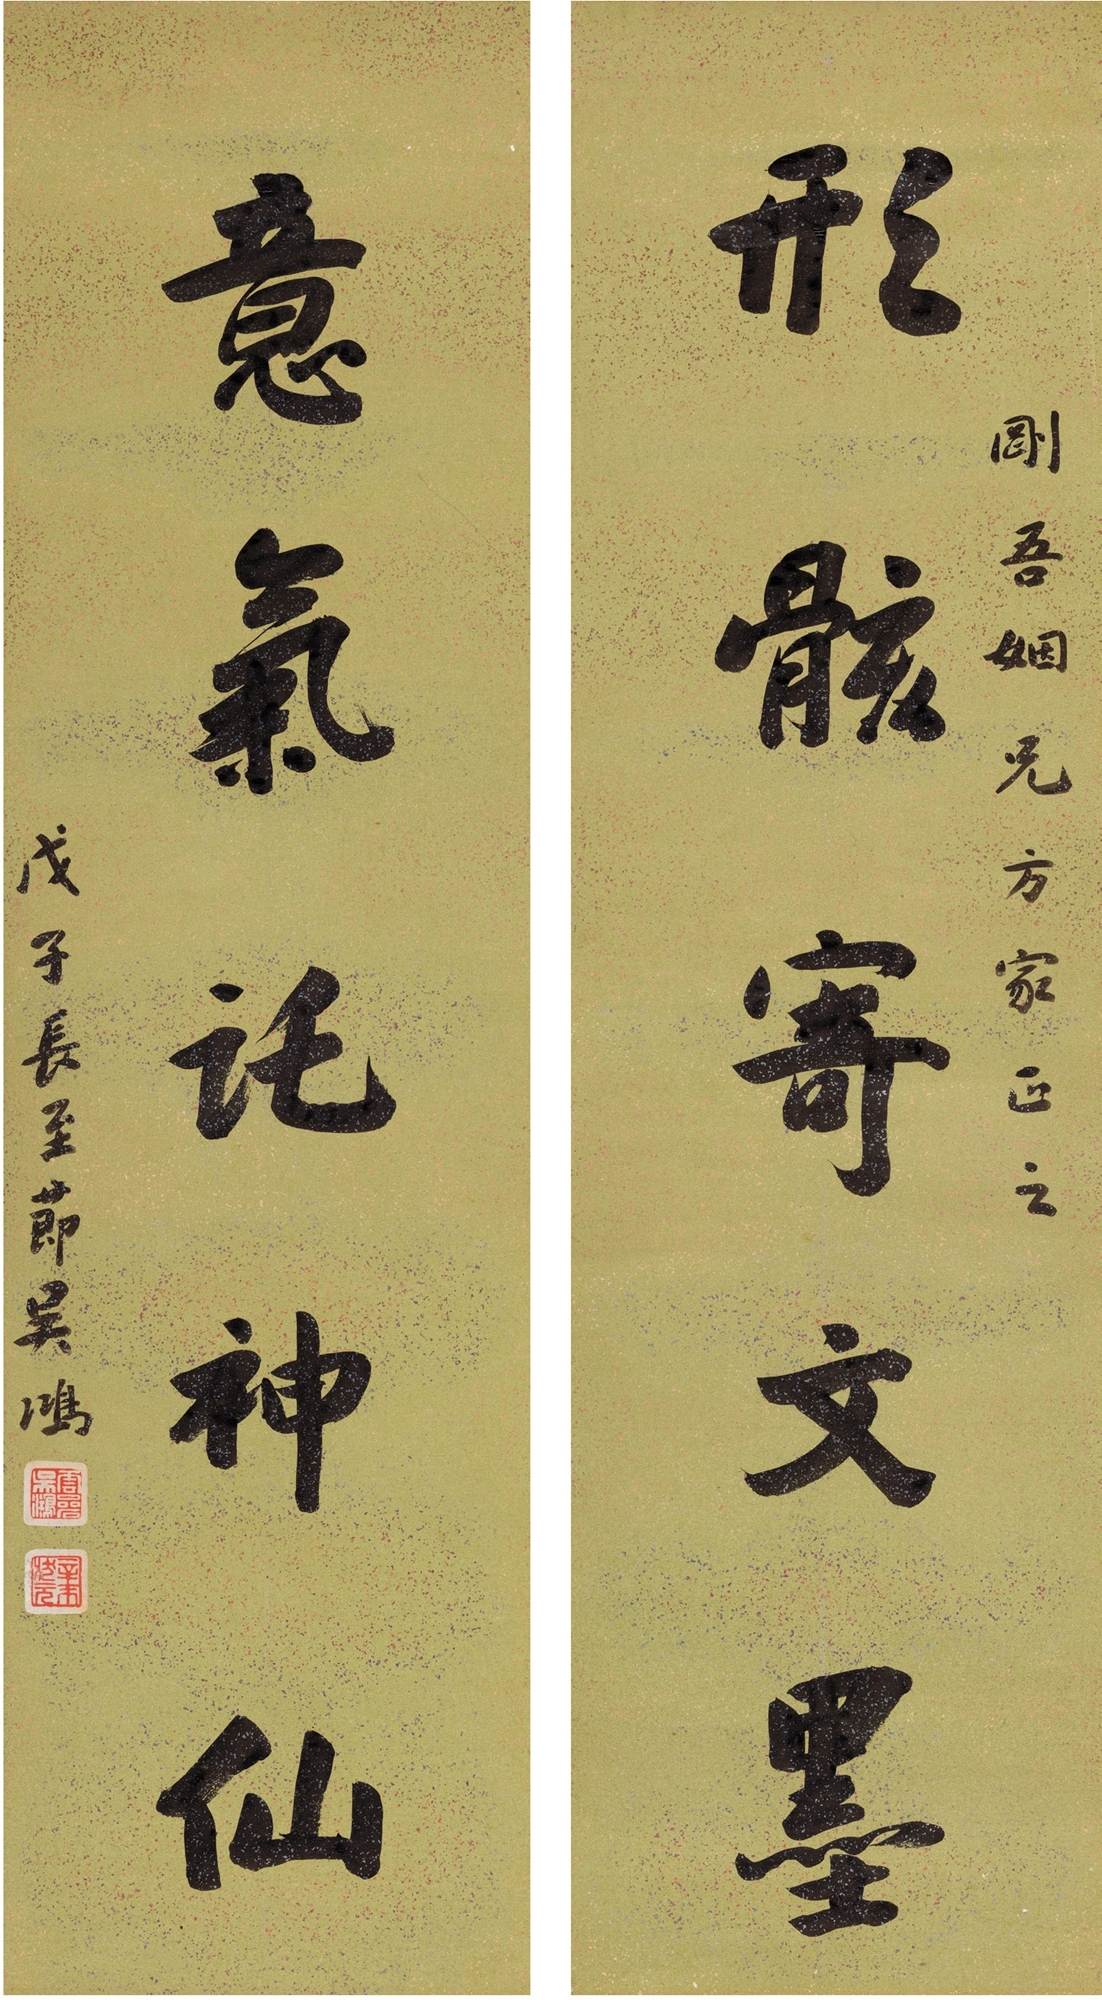 形骸寄文墨
剛吾姻兄方家正之
意氣託神仙
戊子長至節吳鴻